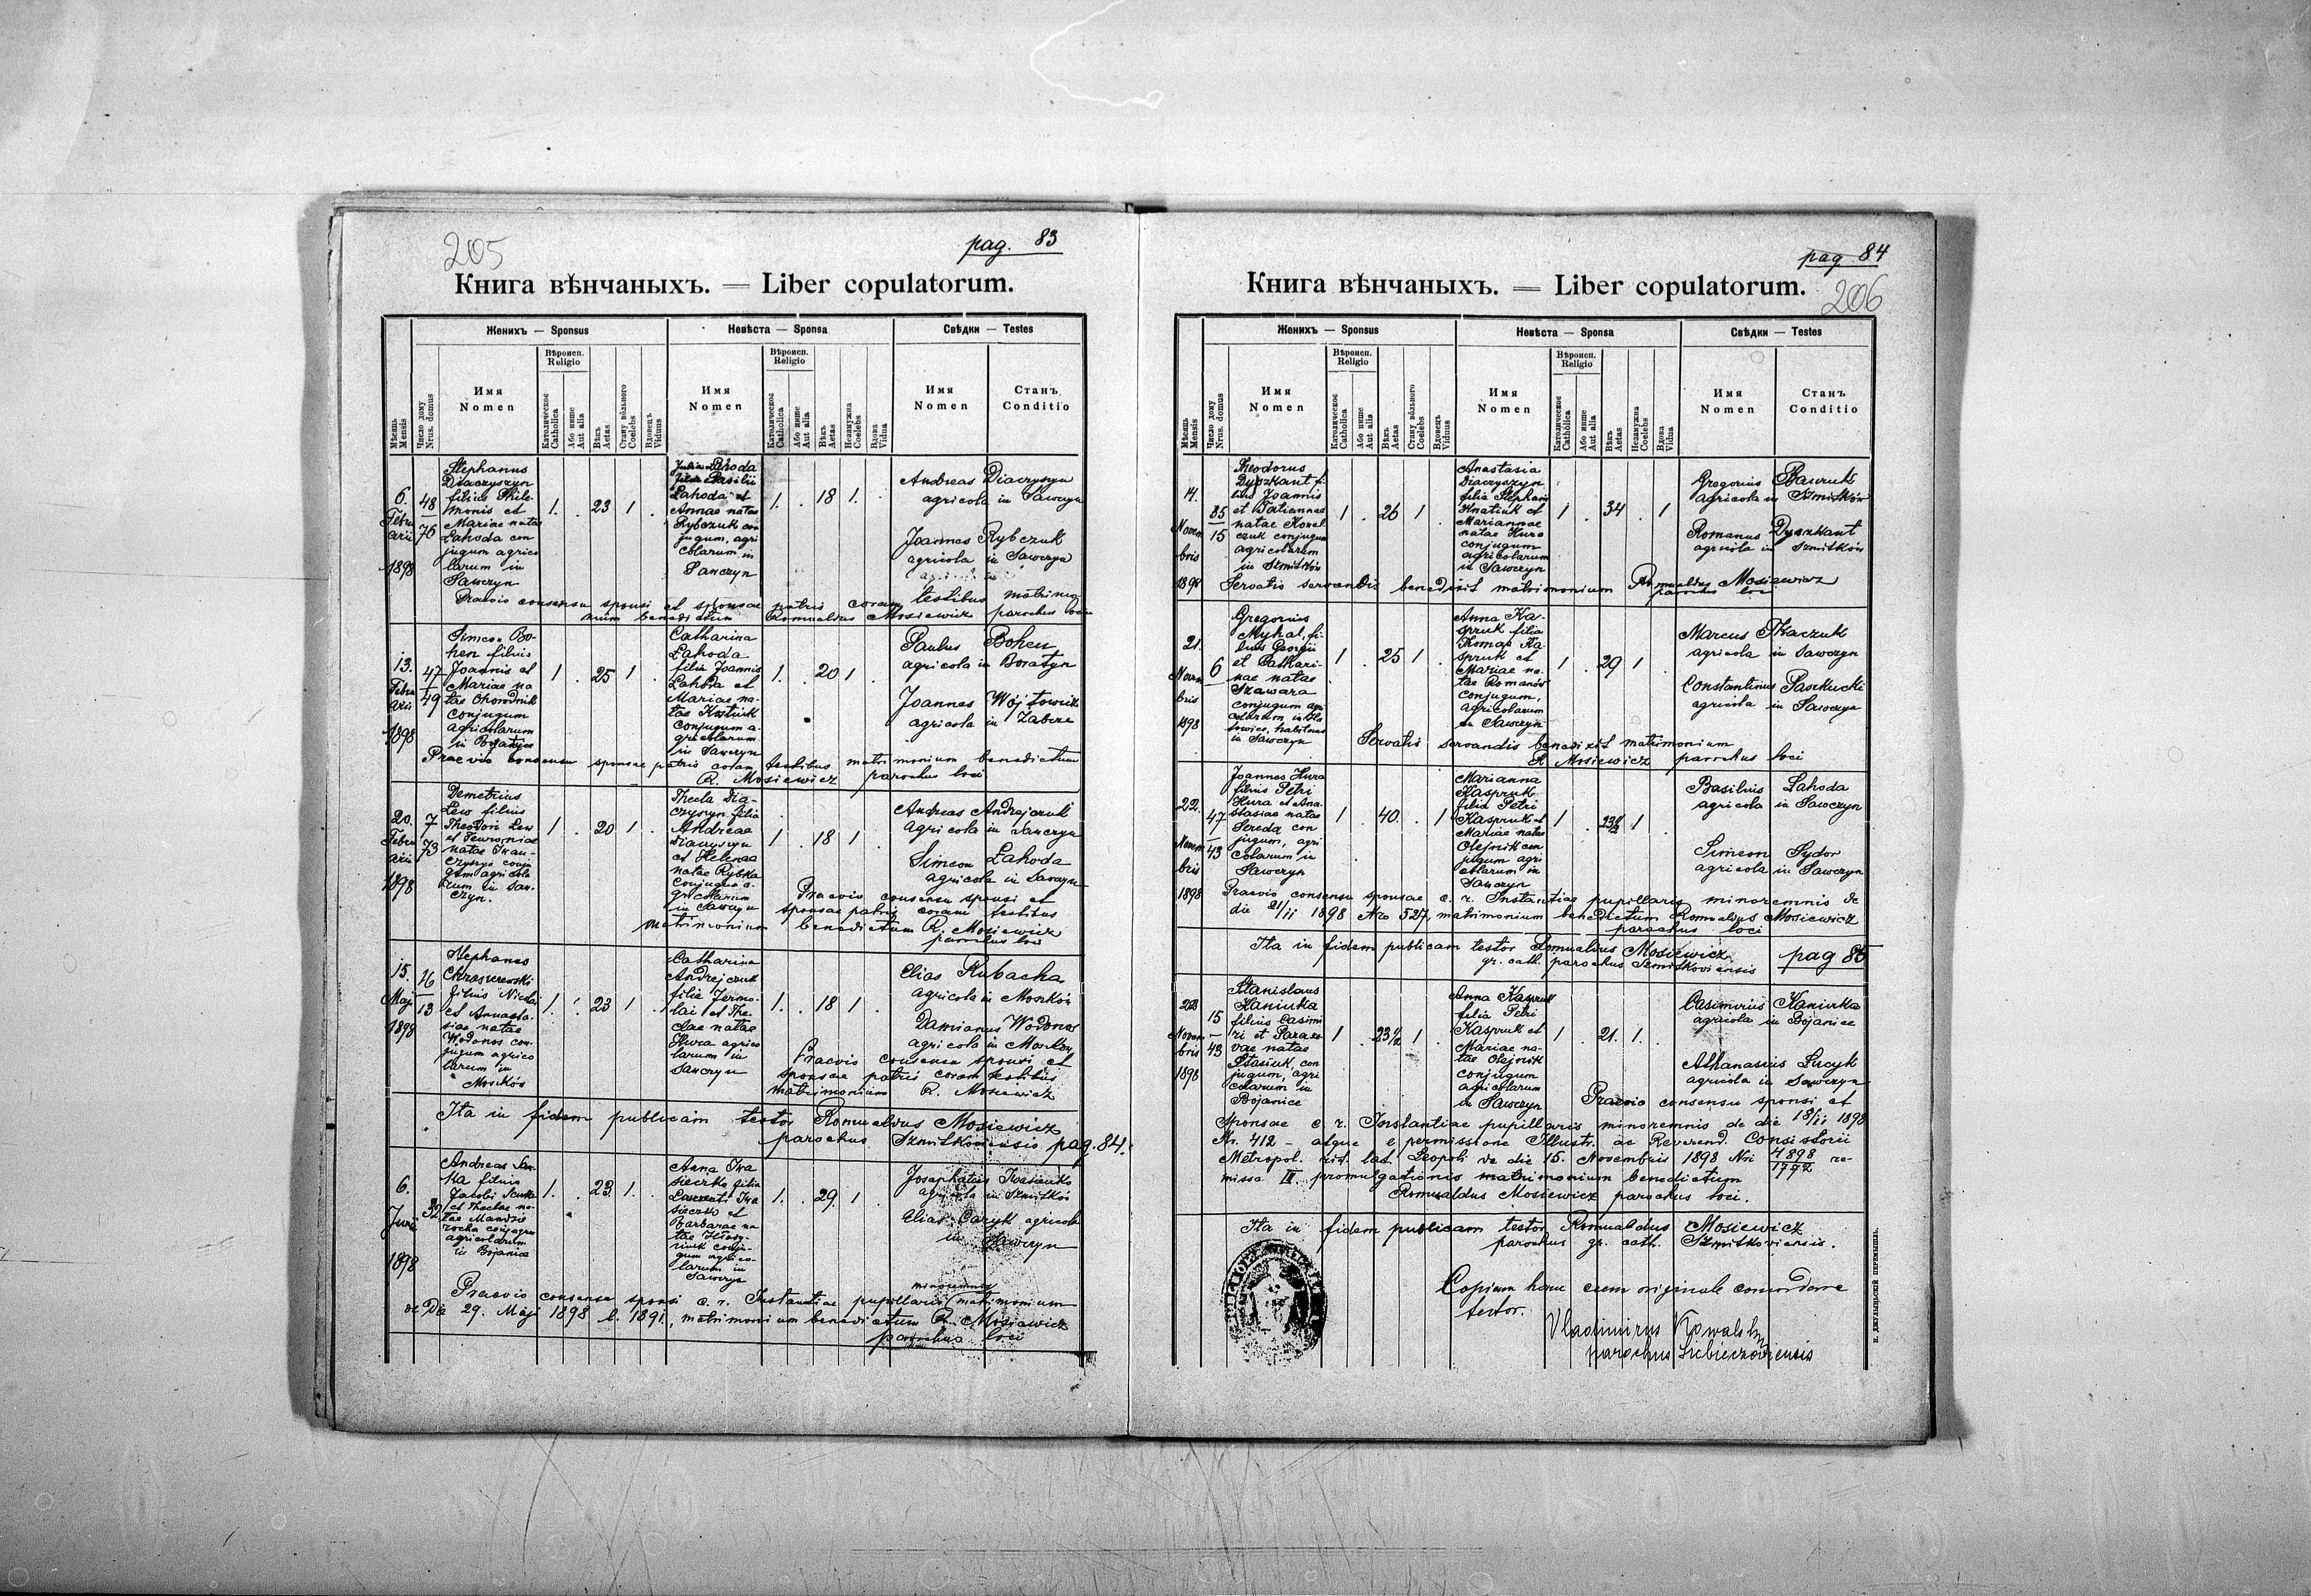 205
pag. 83
Книга вѣнчаныхъ. — Liber copulatorum.
Женихъ — Sponsus
Невѣста — Sponsa
Свѣдки — Testes
Мѣсяць Mensis
Число дому Nrus. domus
Имя Nomen
Вѣроисп. Religio
Католическое Catholica
Або инше Aut alia
Вѣкъ Aetas
Стану вôльного Coelebs
Вдовецъ Viduus
Имя Nomen
Вѣроисп. Religio
Католическое Catholica
Або инше Aut alia
Вѣкъ Aetas
Незамужна Coelebs
Вдова Vidua
Имя Nomen
Станъ Conditio
6. Februarii 1898
48
76
Stephanus
Diaczyszyn
filius Phile-
monis et
Mariae natae
Łahoda con
jugum agrico
larum in
Sawczyn
1. . 23 1 .
Julia Łahoda
filia Basilii
Łahoda et
Annae natae
Rybczuk con
jugum, agri
colarum in
Sawczyn
1. . 18 1. .
Andreas Diaczyszyn
agricola in Sawczyn
Joannes Rybczuk
agricola in Sawczyn
Praevio consensu sponsi et sponsae patris coram testibus matrimo
nium benedictum Romualdus Mosiewicz parochus loci
13. Februarii 1898
47
49
Simeon Bo-
hen filius
Joannis et
Mariae na
tae Ohorodnik
conjugum
agricolarum
in Bojanice
1 . 25 1 .
Catharina
Łahoda
filia Joannis
Łahoda et
Mariae na-
tae Kostiuk
conjugum a-
gricolarum
in Sawczyn
1. . 20 1 .
Paulus Bohen
agricola in Boratyn
Joannes Wójtowicz
agricola in Zabcze
Praevio consensu sponsae patris coram testibus matrimonium benedictum
R. Mosiewicz parochus loci
20. Februarii 1898
7
73
Demetrius
Lew filius
Theodori Lew
natae Iwan-
czyszyn conju
gum agricola
rum in Saw-
czyn.
1 . 20 1 .
Thecla Dia-
czyszyn filia
Andreae
Diaczyszyn
et Helenae
natae Rybka
conjugum a-
gricolarum
in Sawczyn
1 . 18 1 .
Andreas Andrejczuk
agricola in Sawczyn
Simeon Łahoda
agricola in Sawczyn
Praevio consensu sponsi et
sponsae patris coram testibus
matrimonium benedictum R. Mosiewicz
parochus loci
15. Maji 1898
16
13
Stephanus
Chraszczewski
filius Nicolai
et Annasta-
siae natae
Wodonos con-
jugum agrico
larum in
Moszków
1. . 23 1 .
Catharina
Andrejczuk
filia Jermo-
lai et The-
clae natae
Hura agrico
larum in
Sawczyn
1. . 18 1 .
Elias Kubacha
agricola in Moszków
Damianus Wodonos
agricola in Moszków
Praevio consensu sponsi et
sponsae patris coram testibus
matrimonium R. Mosiewicz
Ita in fidem publicam testor Romualdus Mosiewicz
parochus Szmitkoviensis pag. 84.
6. Junii 1898
Andreas
filius
Jacobi
et Theclae na-
tae
conjugum
agricolarum
in Bojanice
1. . 23. 1. .
Anna Iwa
sieczko filia
Laurent. Iwa
sieczko et
Barbarae na
tae
gum agrico-
larum in
Sawczyn
1. . 29. 1
Josaphatus Iwasieczko
agricola in Szmitków
Elias Caryk agricola
in Sawczyn
Praevio consensu sponsi c. r. Instantiae pupillaris minorennis matrimonium
de Die 29. Maji 1898 l. 1891., matrimonium benedictum R. Mosiewicz
parochus loci
pag 84
206
Книга вѣнчаныхъ. — Liber copulatorum.
Женихъ — Sponsus
Невѣста — Sponsa
Свѣдки — Testes
Мѣсяць Mensis
Число дому Nrus. domus
Имя Nomen
Вѣроисп. Religio
Католическое Catholica
Або инше Aut alia
Вѣкъ Aetas
Стану вôльного Coelebs
Вдовецъ Viduus
Имя Nomen
Вѣроисп. Religio
Католическое Catholica
Або инше Aut alia
Вѣкъ Aetas
Незамужна Coelebs
Вдова Vidua
Имя Nomen
Станъ Conditio
14. Novembris 1898
85
15
Theodorus
Dyszkant fi-
lius Joannis
et Tatiannae
natae Kowal
czuk conjugum
agricolarum
in Szmitków
1 . 26 1 .
Anastasia
Diaczyszyn
filia Stephani
Hnatiuk et
Mariannae
natae Hura
conjugum
agricolarum
in Sawczyn
1 . 34 . 1
Gregorius Bawruk
agricola in Szmitków
Romanus Dyszkant
agricola in Szmitków
Servatis servandis benedixit matrimonium Romualdus Mosiewicz
parochus loci
21. Novembris 1898
6
Gregorius
Myhal, fi-
lius Georgii
et Cathari-
nae natae
Szawara
conjugum agri
colarum in
habitans
in Sawczyn
1 . 25 1 .
Anna Ka-
spruk filia
Thomae Ka
spruk et
Mariae na-
tae Romanów
conjugum,
agricolarum
in Sawczyn
1 . 29 1
Marcus Tkaczuk
agricola in Sawczyn
Constantinus Paszkucki
agricola in Sawczyn
Servatis servandis benedixit matrimonium
R. Mosiewicz parochus loci
22. Novembris 1898
47
43
Joannes Hura
filius Petri
Hura et Ana-
stasiae natae
Sereda con
jugum, agri
colarum in
Sawczyn
1 . 40. . 1
Marianna
Kaspruk
filia Petri
Kaspruk et
Mariae natae
Olejnik con
jugum agri
colarum in
Sawczyn
1 . 23½ 1 .
Basilius Łahoda
agricola in Sawczyn
Simeon Sydor
agricola in Sawczyn
Praevio consensu sponsae c. r. Instantiae pupillaris minorennis de
die 21/11 1898 Nro 527, matrimonium benedictum Romualdus Mosiewicz
parochus loci
Ita in fidem publicam testor Romualdus Mosiewicz
gr. cath. parochus Szmitkoviensis pag 85
22 Novembris 1898
15
43
Stanislaus
Kaniuka
filius Casimi
ri et Parasce-
vae natae
Stasiuk, con
jugum, agri
colarum in
Bojanice
1 . 23½ 1 .
Anna Kaspruk
filia Petri
Kaspruk et
Mariae na-
tae Olejnik
conjugum
agricolarum
in Sawczyn
1 . 21. 1.
Casimirus Kaniuka
agricola in Bojanice
Athanasius Lucyk
agricola in Sawczyn
Praevio consensu sponsi et
Sponsae c. r. Instantiae pupillaris minorennis de die 18/11 1898
Nr. 412 - atque e permissione Illustr. ac Reverend. Consistorii
Metropol. rit. lat. Leopoli de die 15. Novembris 1898 Nri 4898 re-
1772
missa III. promulgationis matrimonium benedictum
Romualdus Mosiewicz parochus loci.
Ita in fidem publicam testor Romualdus Mosiewicz
parochus gr. cath. Szmitkoviensis.
Copiam hanc cum originale concordare
testor.
Vladimirus Kowalsky
parochus
Н. ДЖУЛЫНСКІЙ ПЕРЕМЫШЛЬ.